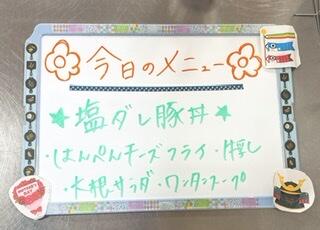 今日のメニュー
★塩ダレ豚丼★
・はんぺんチーズフライ・
・大根サラダ・ワンタンスープ